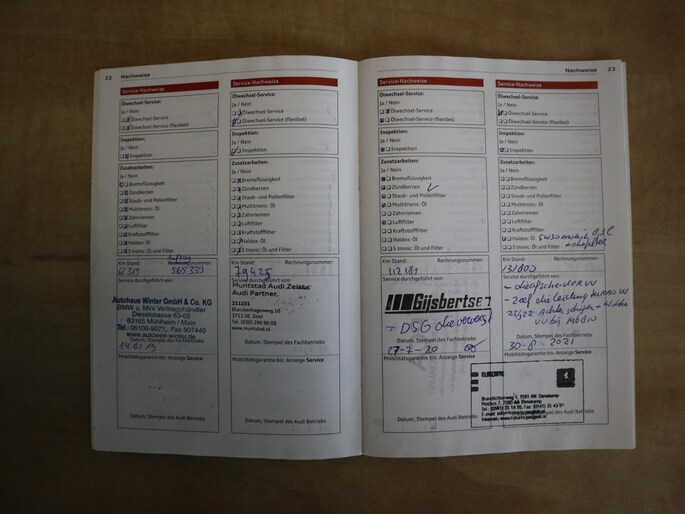 22 Nachweise
Service-Nachweise
Ölwechsel-Service:
Ja / Nein
Ölwechsel-Service
Ölwechsel-Service (flexibel)
Inspektion:
Ja / Nein
Inspektion
Zusatzarbeiten:
Ja / Nein
Bremsflüssigkeit
Zündkerzen
Staub- und Pollenfilter
Multitronic: Öl
Zahnriemen
Luftfilter
Kraftstofffilter
Haldex: Öl
S tronic: Öl und Filter
Km Stand: Rechnungsnummer:
565359
Service durchgeführt von:
Autohaus Winter GmbH & Co. KG
BMW u. Mini Vertragshändler
Dieselstrasse 63-65
63165 Mühlheim / Main
Datum, Stempel des Fachbetriebs
14.01.19
Mobilitätsgarantie bis: Anzeige Service
Datum, Stempel des Audi Betriebs
Service-Nachweise
Ölwechsel-Service:
Ja / Nein
Ölwechsel-Service
Ölwechsel-Service (flexibel)
Inspektion:
Ja / Nein
Inspektion
Zusatzarbeiten:
Ja / Nein
Bremsflüssigkeit
Zündkerzen
Staub- und Pollenfilter
Multitronic: Öl
Zahnriemen
Luftfilter
Kraftstofffilter
Haldex: Öl
S tronic: Öl und Filter
Km Stand: Rechnungsnummer:
79425
Service durchgeführt von:
Muntstad Audi Zeist
Audi Partner,
211231
Blanckenhagenweg 10
3712 DE Zeist
Tel. (030) 296 90 00
www.muntstad.nl
Datum, Stempel des Fachbetriebs
Mobilitätsgarantie bis: Anzeige Service
Datum, Stempel des Audi Betriebs
Nachweise 23
Service-Nachweise
Ölwechsel-Service:
Ja / Nein
Ölwechsel-Service
Ölwechsel-Service (flexibel)
Inspektion:
Ja / Nein
Inspektion
Zusatzarbeiten:
Ja / Nein
Bremsflüssigkeit
Zündkerzen
Staub- und Pollenfilter
Multitronic: Öl
Zahnriemen
Luftfilter
Kraftstofffilter
Haldex: Öl
S tronic: Öl und Filter
Km Stand: Rechnungsnummer:
112181
Service durchgeführt von:
Gijsbertsen
DSG olie ververst
Datum, Stempel des Fachbetriebs
27-7-20
Mobilitätsgarantie bis: Anzeige Service
Datum, Stempel des Audi Betriebs
Service-Nachweise
Ölwechsel-Service:
Ja / Nein
Ölwechsel-Service
Ölwechsel-Service (flexibel)
Inspektion:
Ja / Nein
Inspektion
Zusatzarbeiten:
Ja / Nein
Bremsflüssigkeit
Zündkerzen
Staub- und Pollenfilter
Multitronic: Öl
Zahnriemen
Luftfilter
Kraftstofffilter
Haldex: Öl
S tronic: Öl und Filter
Km Stand: Rechnungsnummer:
131800
Service durchgeführt von:
Datum, Stempel des Fachbetriebs
30-8-2021
Mobilitätsgarantie bis: Anzeige Service
Datum, Stempel des Audi Betriebs